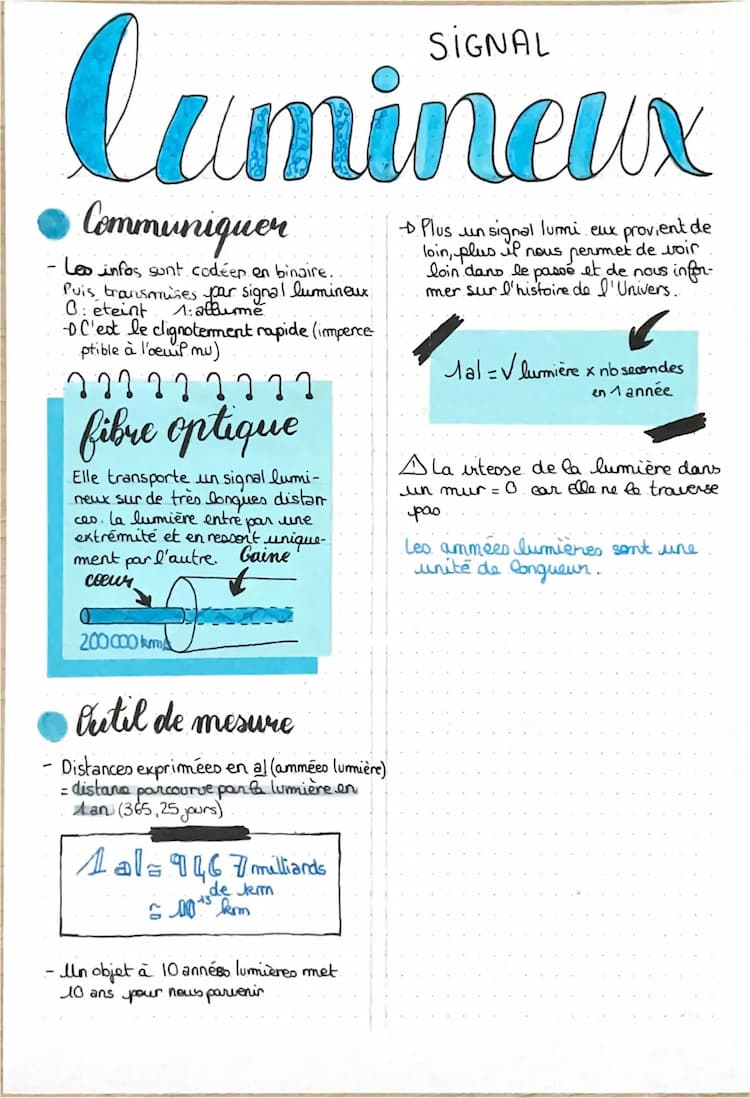 SIGNAL
lumineux
Communiquer
- Les infos sont codéer en binaire.
Puis transmises par signal lumineux
0 : éteint 1 : allumé
→ C'est le clignotement rapide (imperce
ptible à l'oeuf mu)
fibre optique
Elle transporte un signal lumi-
neux sur de très longues distan
ces. la lumière entre par une
extrémité et en ressort unique-
ment par l'autre. Gaine
cœur
200 000 km/s
Outil de mesure
- Distances exprimées en al (ammées lumière)
= distance parcourue par la lumière en
1 an (365,25 jours)
1 al ≈ 9467 milliards
de km
≈ 10¹³ km
- Un objet à 10 années lumières met
10 ans pour nous parvenir
→ Plus un signal lumi eux provient de
loin, plus il nous permet de voir
loin dans le passé et de nous infor-
mer sur l'histoire de l'Univers.
1al = √ lumière × nb secondes
en 1 année
⚠ La viteose de la lumière dans
un mur = 0 car elle ne le traverse
pas
Les ammées lumières sont une
unité de longueur.